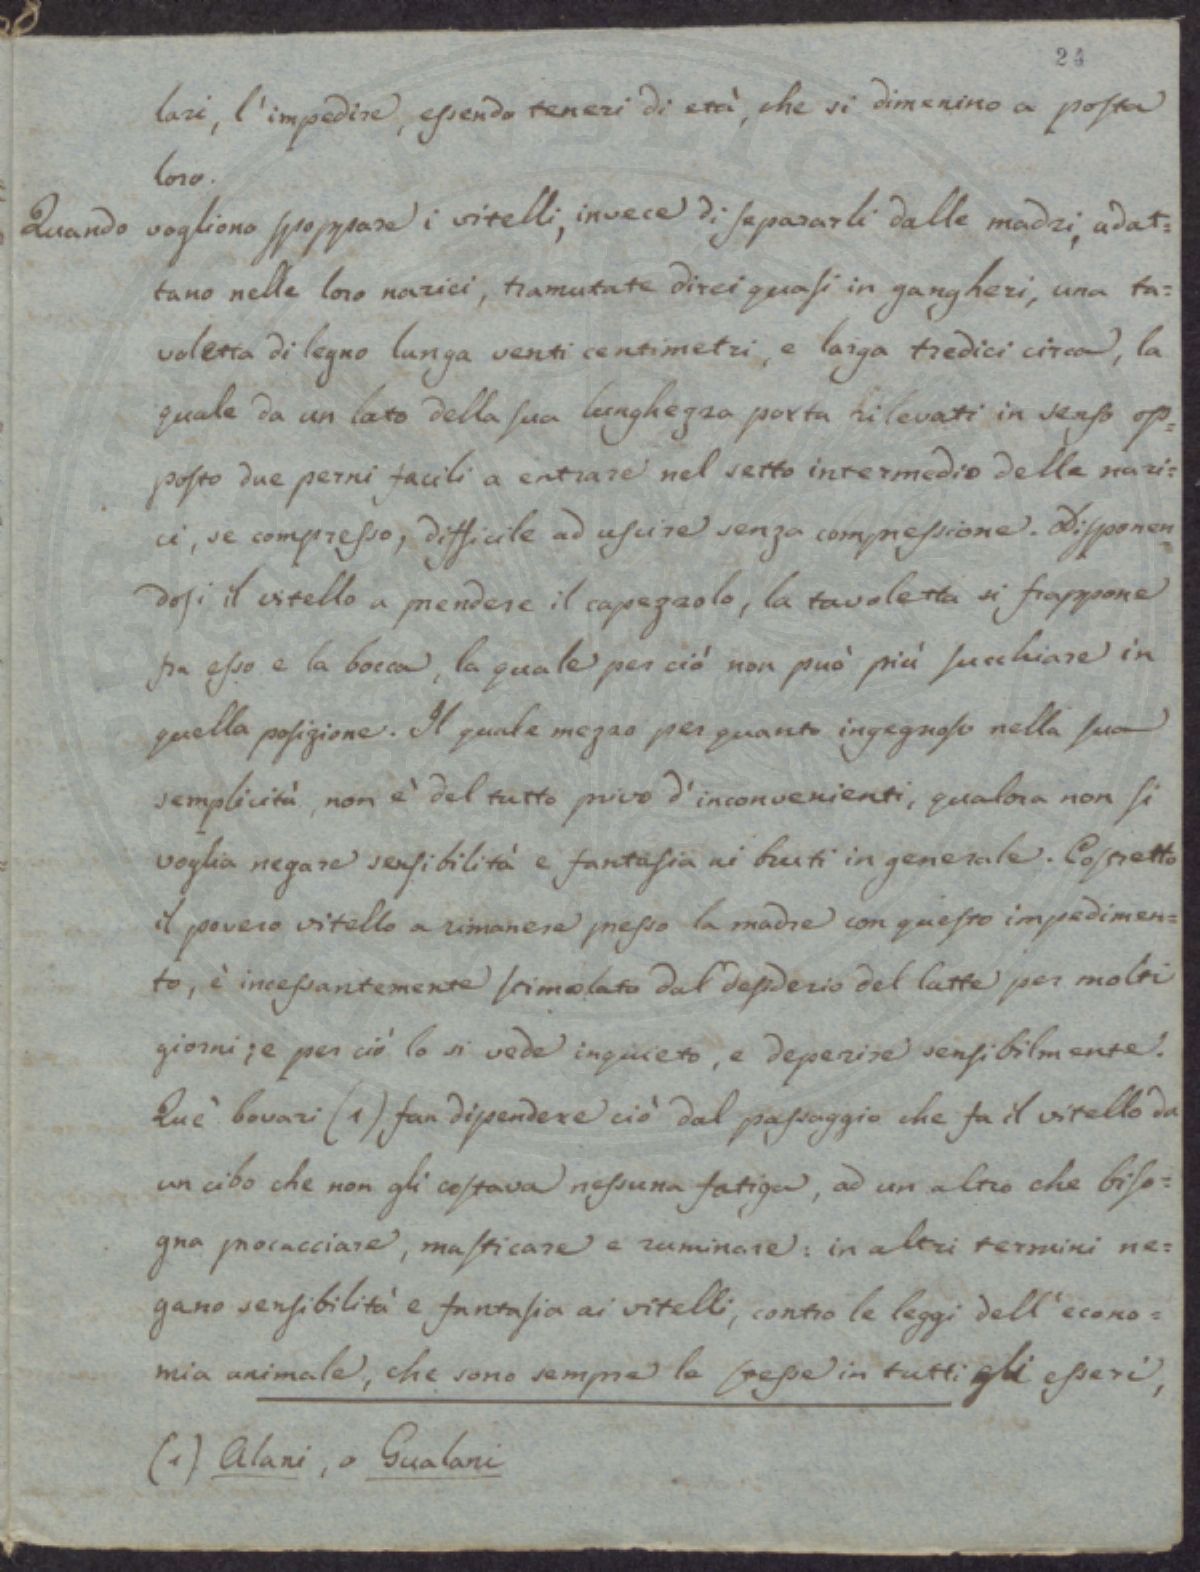 24
lari, l'impedire, essendo teneri di età, che si dimenino a posta
loro.
Quando vogliono spoppare i vitelli, invece di separarli dalle madri, adat=
tano nelle loro narici, tramutate direi quasi in gangheri, una ta=
voletta di legno lunga venti centimetri, e larga tredici circa, la
quale da un lato della sua lunghezza porta rilevati in senso op=
posto due perni facili a entrare nel setto intermedio delle nari=
ci, se compresso, difficile ad uscire senza compressione. Disponen
dosi il vitello a prendere il capezzolo, la tavoletta si frappone
fra esso e la bocca, la quale per ciò non può più succhiare in
quella posizione. Il quale mezzo per quanto ingegnoso nella sua
semplicità, non è del tutto privo d'inconvenienti, qualora non si
voglia negare sensibilità e fantasia ai bruti in generale. Costretto
il povero vitello a rimanere presso la madre con questo impedimen=
to, è incessantemente stimolato dal desiderio del latte per molti
giorni; e per ciò lo si vede inquieto, e deperire sensibilmente.
Que' bovari (1) fan dipendere ciò dal passaggio che fa il vitello da
un cibo che non gli costava nessuna fatiga, ad un altro che biso=
gna procacciare, masticare e ruminare: in altri termini ne=
gano sensibilità e fantasia ai vitelli, contro le leggi dell'econo=
mia animale, che sono sempre le stesse in tutti gli esseri,
(1) Alani, o Gualani